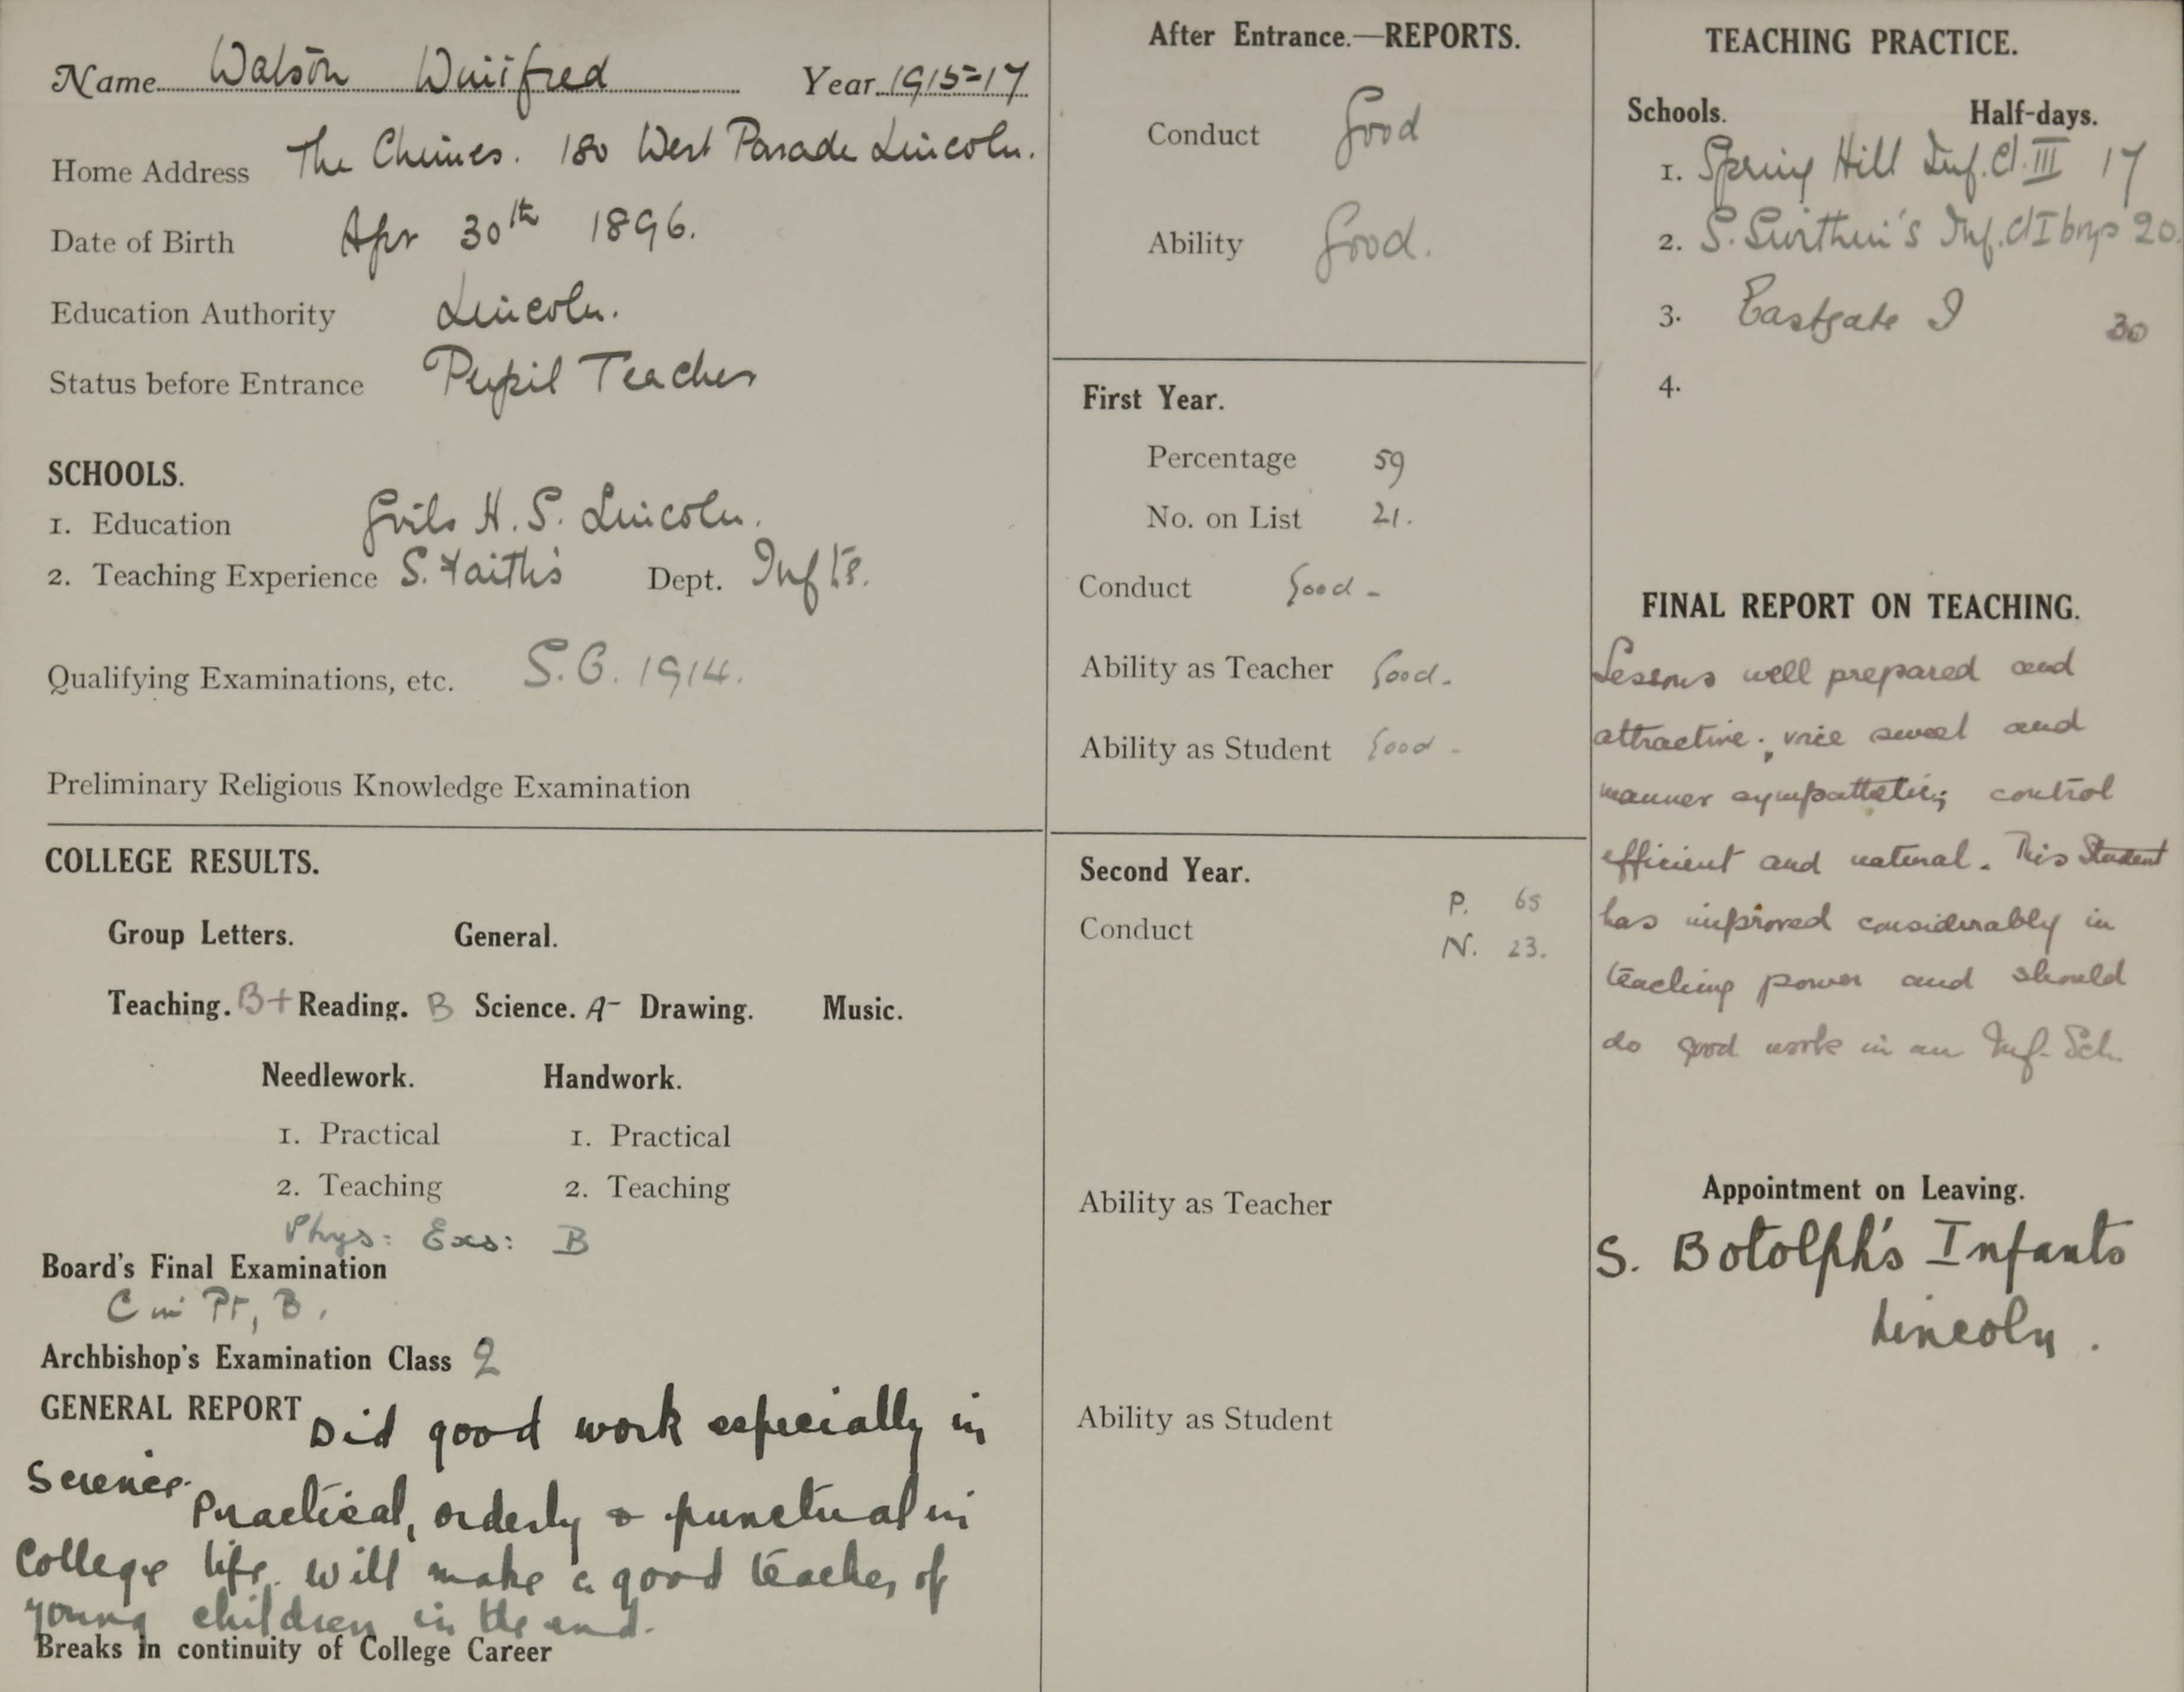 Name Watson Winifred Year 1915=17
Home Address The Chimes. 180 West Parade Lincoln.
Date of Birth Apr 30th 1896.
Education Authority Lincoln.
Status before Entrance Pupil Teacher
SCHOOLS.
1. Education Girls H. S. Lincoln.
2. Teaching Experience S. Faith's Dept. Infts.
Qualifying Examinations, etc. S.C. 1914.
Preliminary Religious Knowledge Examination
COLLEGE RESULTS.
Group Letters. General.
Teaching. B+ Reading. B Science. A- Drawing. Music.
Needlework. Handwork.
1. Practical 1. Practical
2. Teaching 2. Teaching
Phys: Exs: B
Board's Final Examination
C in Pt, B.
Archbishop's Examination Class 2
GENERAL REPORT Did good work especially in
Science. Practical, orderly & punctual in
College life. Will make a good teacher of
young children in the end.
Breaks in continuity of College Career
After Entrance.—REPORTS.
Conduct Good
Ability Good.
First Year.
Percentage 59
No. on List 21.
Conduct Good -
Ability as Teacher Good.
Ability as Student Good -
Second Year.
P. 65
Conduct
N. 23.
Ability as Teacher
Ability as Student
TEACHING PRACTICE.
Schools. Half-days.
1. Spring Hill Inf. Cl. III 17
2. S. Swithin's Inf. Cl I boys 20.
3. Eastgate I 30
4.
FINAL REPORT ON TEACHING.
Lessons well prepared and
attractive; voice sweet and
manner sympathetic; control
efficient and natural. This Student
has improved considerably in
teaching power and should
do good work in an Inf. Sch.
Appointment on Leaving.
S. Botolph's Infants
Lincoln.